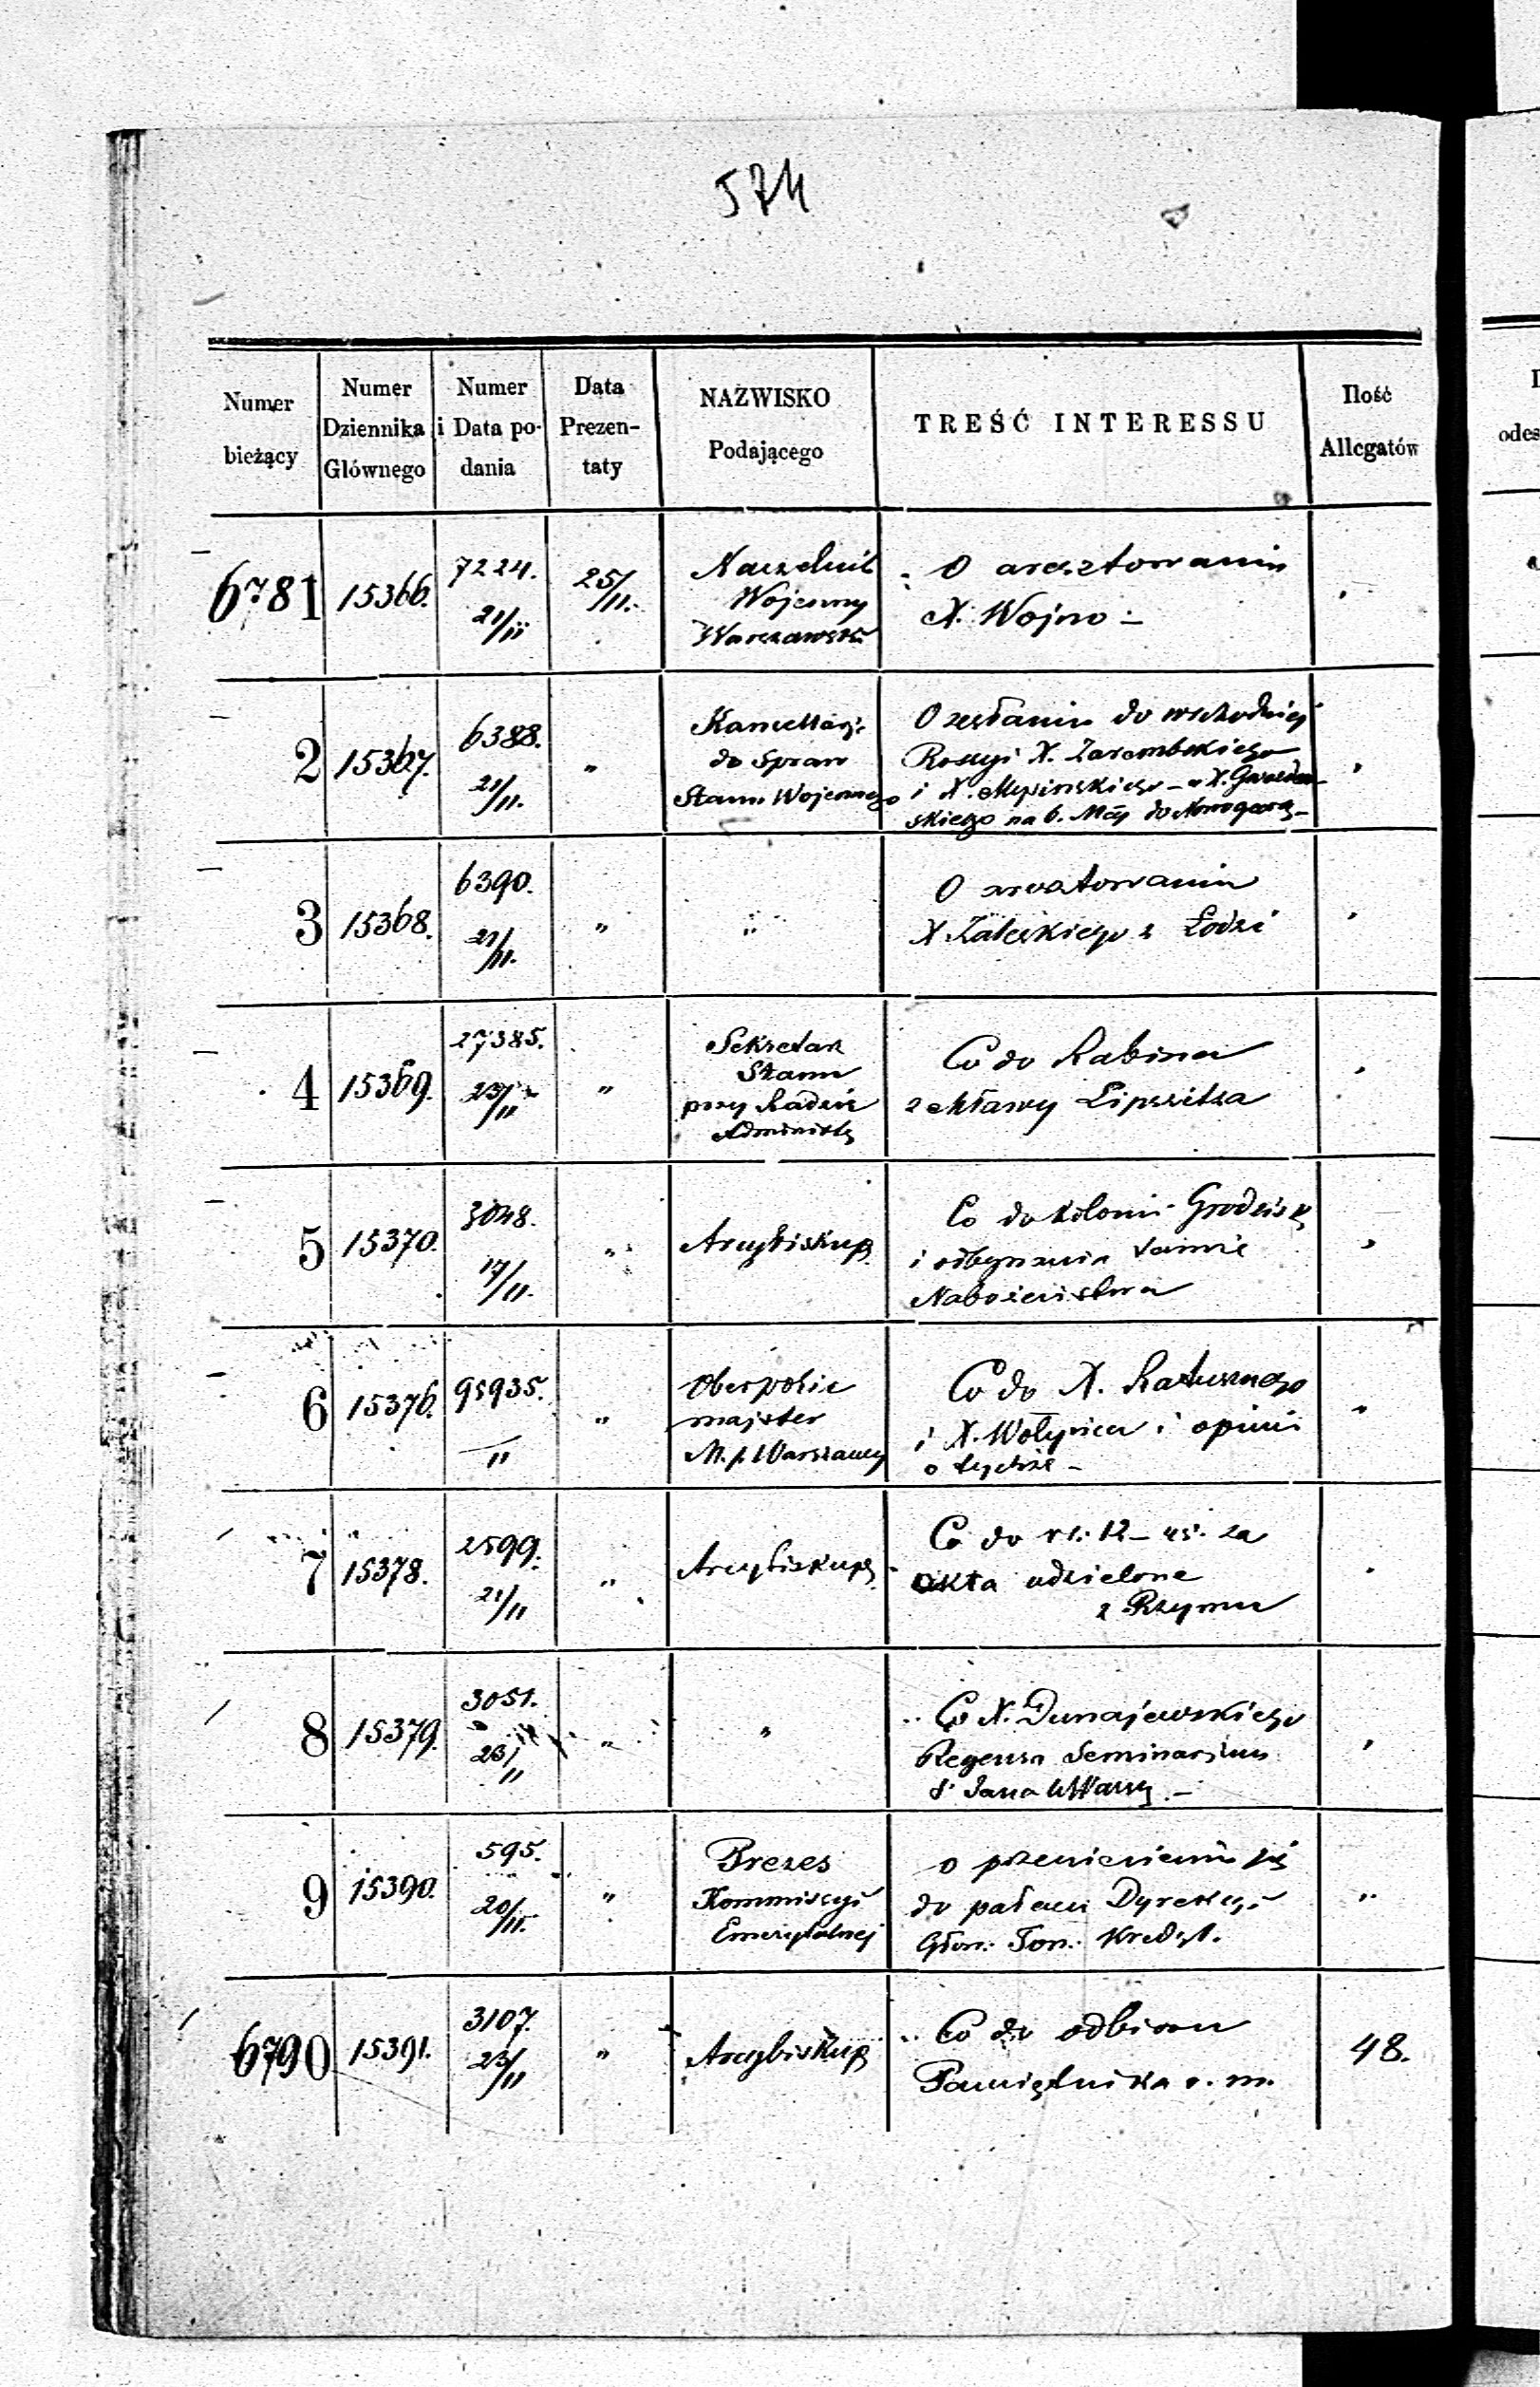 574
Numer bieżący
Numer Dziennika Głównego
Numer i Data podania
Data Prezentaty
NAZWISKO Podającego
TREŚĆ INTERESSU
Ilość Allegatów
6781 15366. 7224. 21/11 25/11. Naczelnik Wojenny Warszawsk. O aresztowaniu X. Wojno –
2 15367. 6388. 21/11. " Kancellarji do Spraw Stanu Wojennego O zesłaniu do wschodniej
Rossyi X. Zarembskiego
i X. – X.
skiego na 6. Mcy do
3 15368. 6390. 21/11. " " O aresztowaniu
X. Zaleskiego z Łodzi
4 15369. 27385. 23/11 " Sekretarz Stanu przy Radzie Administ. Co do Rabina
z Mławy Lipszitza
5 15370. 3048. 17/11. " Arcybiskup. Co do kolonii Grodzisk
i odbywania tamże
Nabożeństwa
6 15376. 95935. /11 " Oberpolic majster M. s. Warszawy Co do X. Ratusznego
i X. Wołyńca i opinii
o tychże –
7 15378. 2599. 21/11 " Arcybiskup. Co do rs. 12 – za
akta udzielone
z Rzymu
8 15379. 3051. 23/11 " " Co X. Dunajewskiego
Regensa Seminarium
S. Jana
9 15390. 595. 20/11. " Prezes Kommissyi Emerytalnej o przeniesieniu się
do pałacu Dyrekcyi
Głów. Tow. Kredyt.
6790 15391. 3107. 23/11 " Arcybiskup Co do odbioru
Pamiętnika r. m. 48.
odes